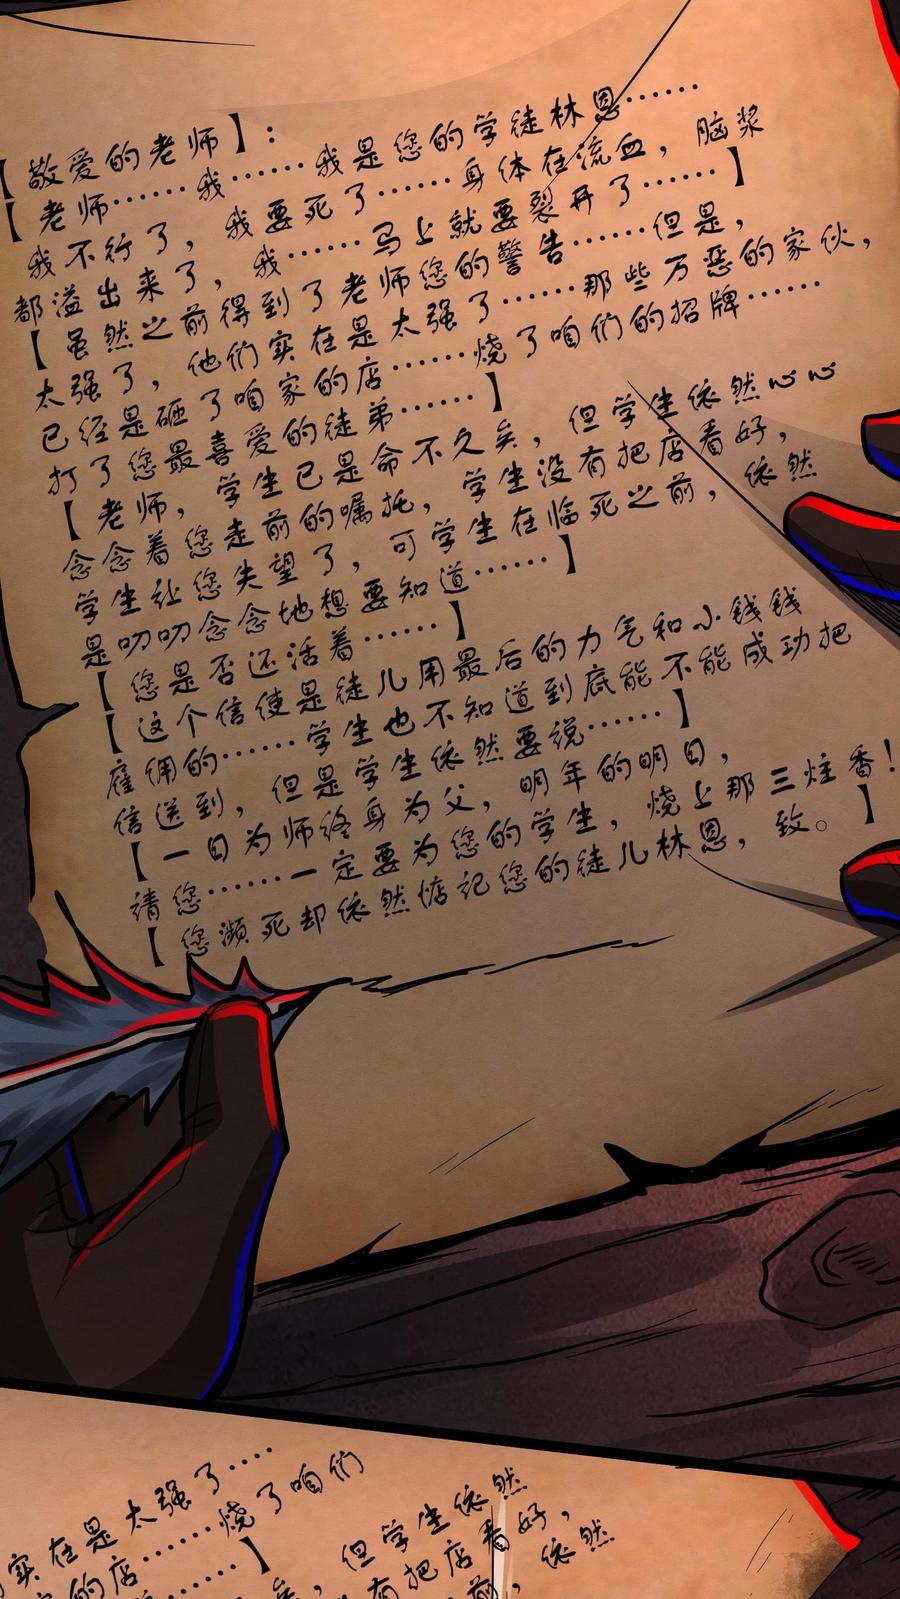 【敬爱的老师】：
【老师……我……我是您的学徒林恩……
我不行了，我要死了……身体在流血，脑浆
都溢出来了，我……马上就要裂开了……】
【虽然之前得到了老师您的警告……但是，
太强了，他们实在是太强了……那些万恶的家伙，
已经是砸了咱家的店……烧了咱们的招牌……
打了您最喜爱的徒弟……】
【老师，学生已是命不久矣，但学生依然心心
念念着您走前的嘱托，学生没有把店看好，
学生让您失望了，可学生在临死之前，依然
是叨叨念念地想要知道……】
【您是否还活着……】
【这个信使是徒儿用最后的力气和小钱钱
雇佣的……学生也不知道到底能不能成功把
信送到，但是学生依然要说……】
【一日为师终身为父，明年的明日，
请您……一定要为您的学生，烧上那三炷香！】
【您濒死却依然惦记您的徒儿林恩，致。】
实在是太强了……
的店……烧了咱们
……】
矣，但学生依然
有把店看好，
前，依然